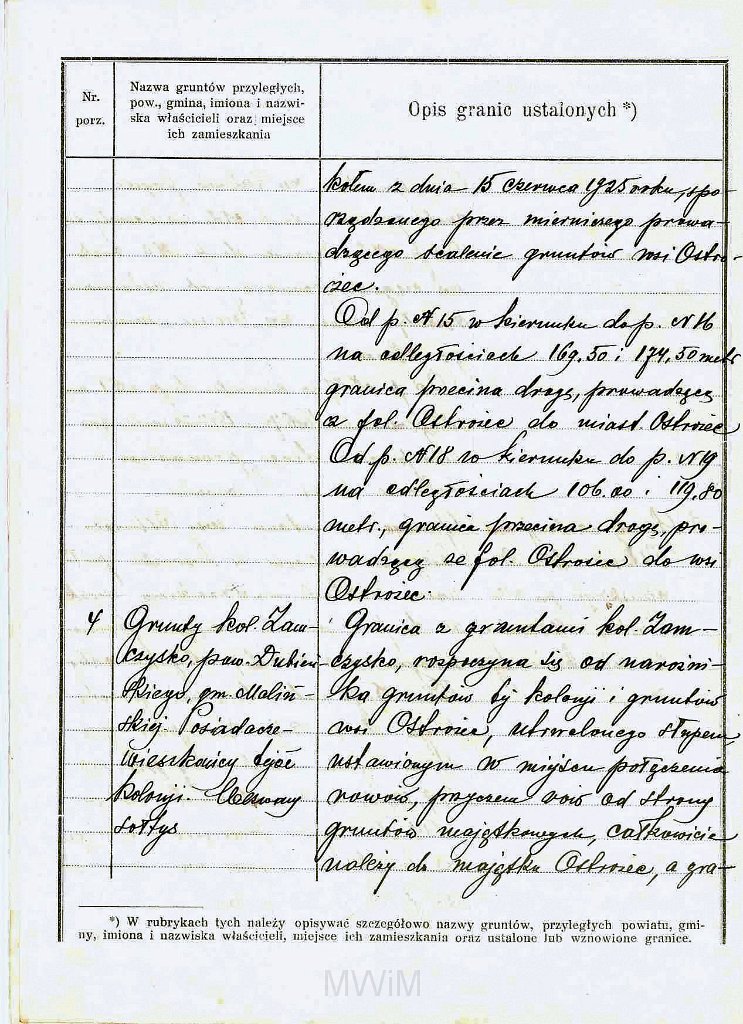 Nr.
porz.
Nazwa gruntów przyległych,
pow., gmina, imiona i nazwi-
ska właścicieli oraz miejsce
ich zamieszkania
Opis granic ustalonych *)
kołem z dnia 15 czerwca 1925 roku, spo-
rządzonego przez mierniczego prowa-
dzącego scalenie gruntów wsi Ostro-
żec.
Od p. N 15 w kierunku do p. N 16
na odległościach 169,50 i 174,50 metr
granica przecina drogę, prowadzącą
z fol. Ostrożec do miast. Ostrożec
Od p. N 18 w kierunku do p. N 19
na odległościach 106.00 i 119,80
metr., granica przecina drogę, pro-
wadzącą ze fol. Ostrożec do wsi
Ostrożec.
4
Grunty kol. Zam-
czysko, pow. Dubień-
skiego, gm. Maliń-
skiej Posiadacze-
wieszkańcy tejże
kolonji.
sołtys
Granica z gruntami kol. Zam-
czysko, rozpoczyna się od narożni-
ka gruntów tej kolonji i gruntów
wsi Ostrożec, utrwalonego słupem
ustawionym w miejscu połączenia
rowów, przyczem rów od strony
gruntów majątkowych, całkowicie
należy do majątku Ostrożec, a gra-
*) W rubrykach tych należy opisywać szczegółowo nazwy gruntów, przyległych powiatu, gmi-
ny, imiona i nazwiska właścicieli, miejsce ich zamieszkania oraz ustalone lub wznowione granice.
MWiM